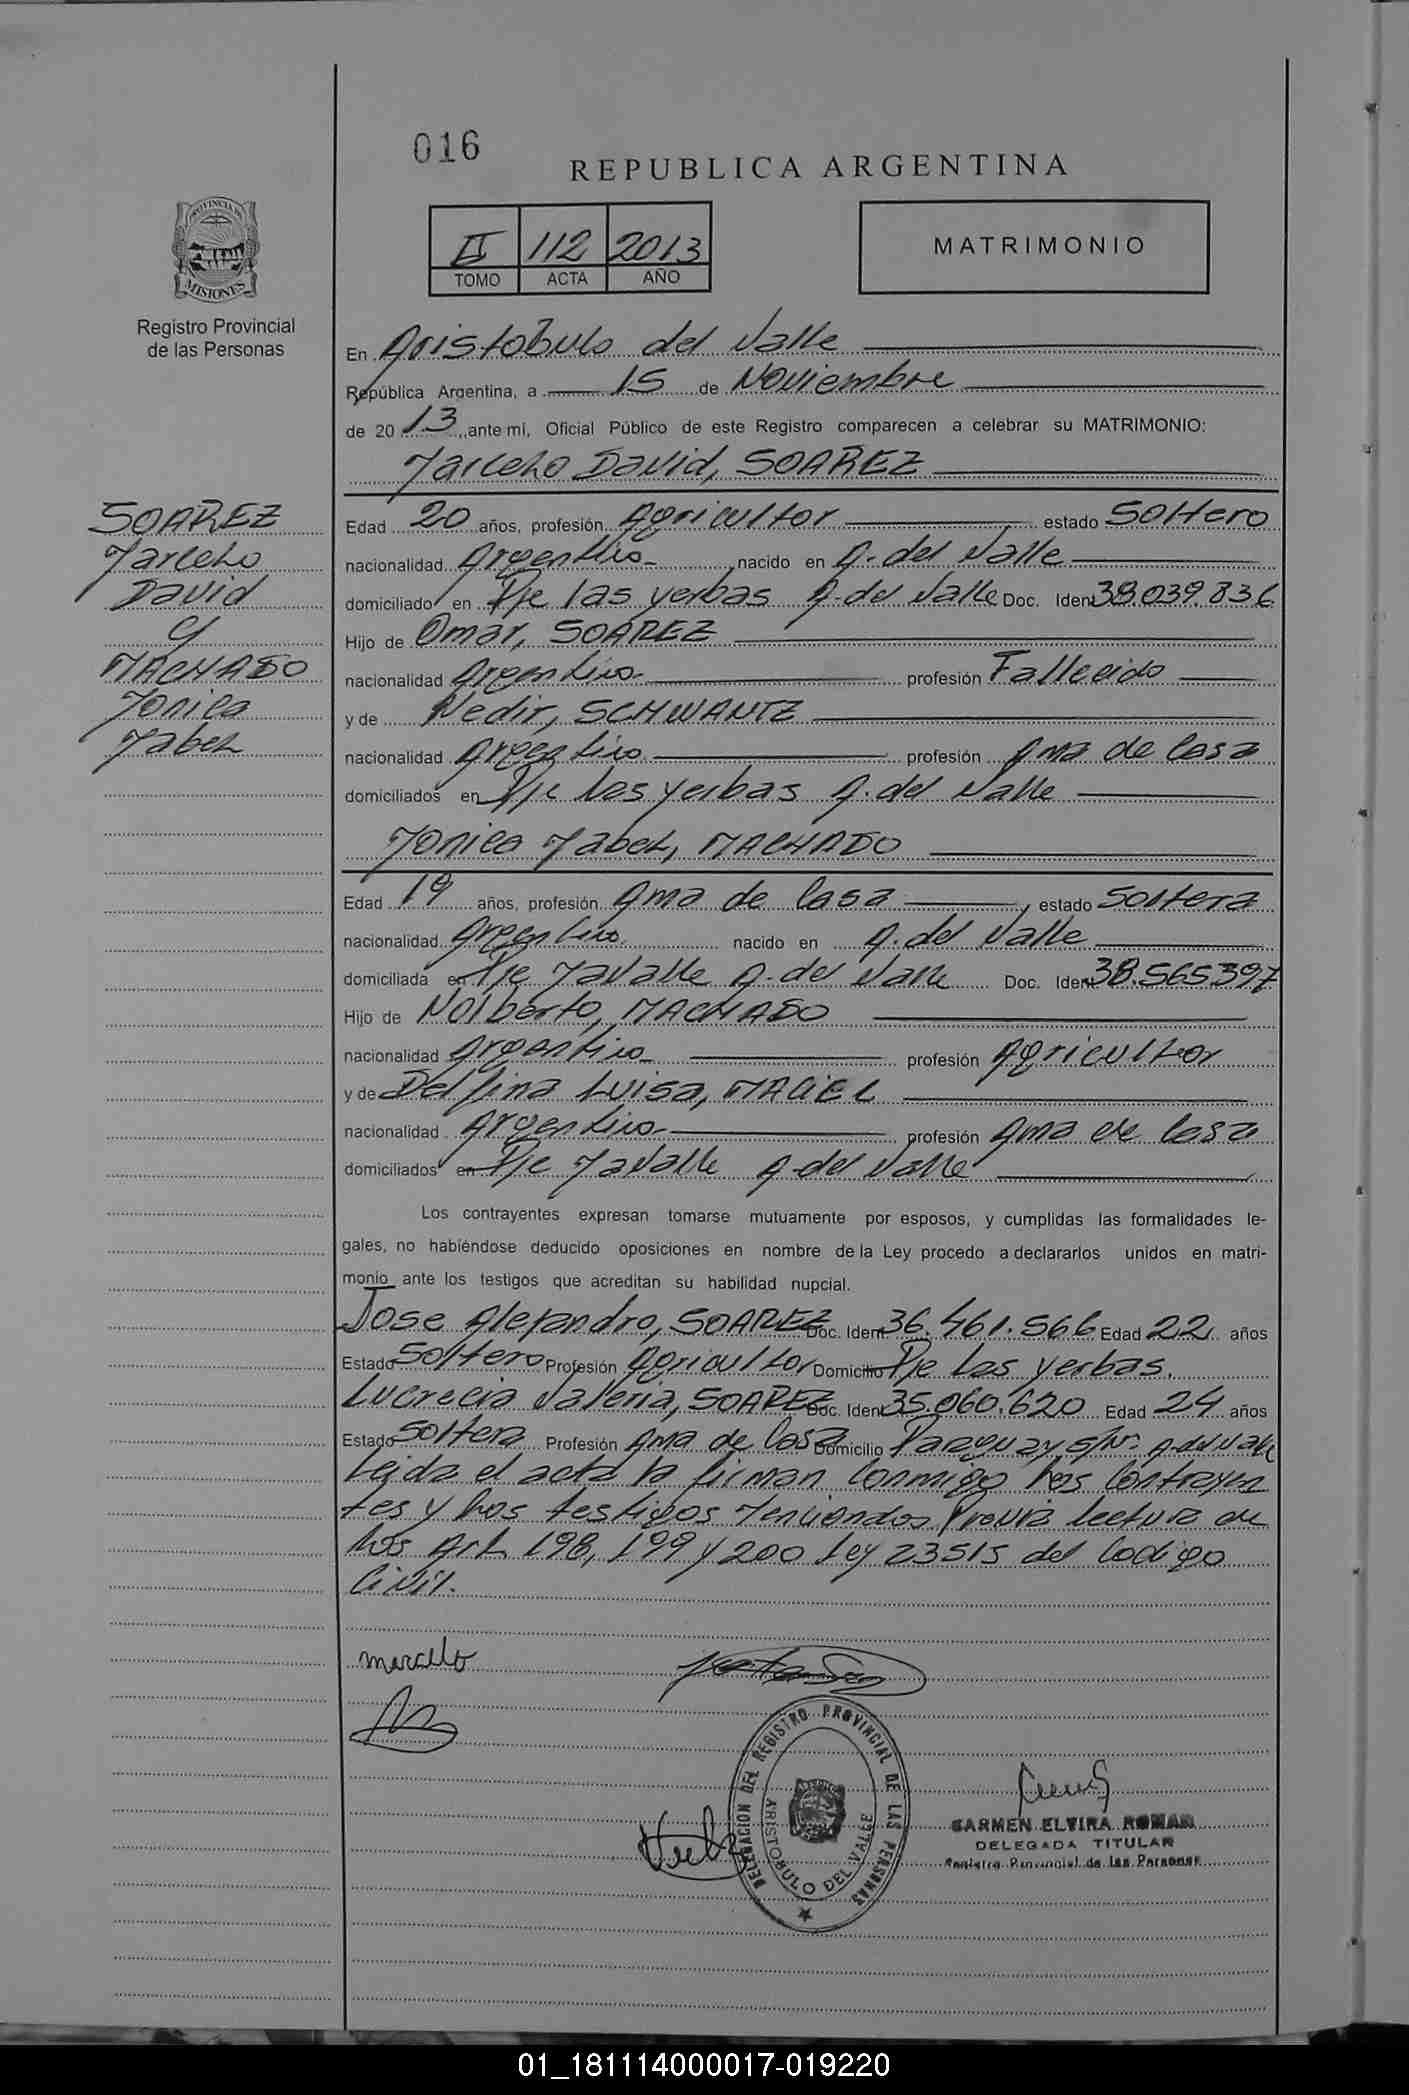 016
REPUBLICA ARGENTINA
II 112 2013
TOMO ACTA AÑO
MATRIMONIO
PROVINCIA DE
MISIONES
Registro Provincial
de las Personas
En Aristobulo del Valle
República Argentina, a 15 de Noviembre
de 2013, ante mi, Oficial Público de este Registro comparecen a celebrar su MATRIMONIO:
Marcelo David, SOAREZ
SOAREZ
Marcelo
David
y
MACHADO
Monica
Mabel
Edad 20 años, profesión Agricultor estado Soltero
nacionalidad Argentino nacido en A. del Valle
domiciliado en Pje las yerbas A. del Valle Doc. Iden 38.039.836
Hijo de Omar, SOAREZ
nacionalidad Argentino profesión Fallecido
y de Nedir, SCHWANTZ
nacionalidad Argentina profesión Ama de Casa
domiciliados en Pje las yerbas A. del Valle
Monica Mabel, MACHADO
Edad 19 años, profesión Ama de Casa estado Soltera
nacionalidad Argentina nacido en A. del Valle
domiciliada en Pje A. del Valle Doc. Iden 38.565.397
Hijo de Nolberto, MACHADO
nacionalidad Argentino profesión Agricultor
y de Delfina Luisa, MACIEL
nacionalidad Argentina profesión Ama de Casa
domiciliados en Pje A. del Valle
Los contrayentes expresan tomarse mutuamente por esposos, y cumplidas las formalidades le-
gales, no habiéndose deducido oposiciones en nombre de la Ley procedo a declararlos unidos en matri-
monio ante los testigos que acreditan su habilidad nupcial.
Jose Alejandro, SOAREZ Doc. Ident 36.461.566 Edad 22 años
Estado Soltero Profesión Agricultor Domicilio Pje Las yerbas.
Lucrecia Valeria, SOAREZ Doc. Iden 35.060.620 Edad 24 años
Estado Soltera Profesión Ama de Casa Domicilio Paraguay s/nº A. del Valle
Leida el acta la firman Conmigo los Contrayen
tes y los testigos Mencionados Previa lectura de
los Art 198, 199 y 200 Ley 23515 del Codigo
Civil.
marcelo
DELEGACION DEL REGISTRO PROVINCIAL DE LAS PERSONAS
ARISTOBULO DEL VALLE
CARMEN ELVIRA ROMAN
DELEGADA TITULAR
Registro Provincial de las Personas
01_181114000017-019220